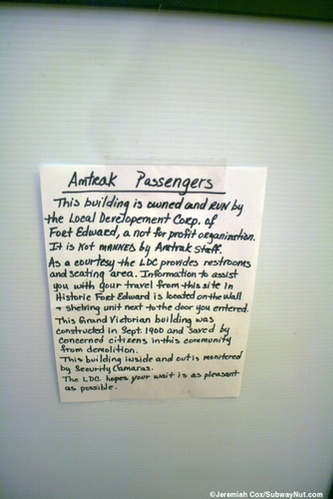 Amtrak Passengers
This building is owned and RUN by
the Local Developement Corp. of
Fort Edward, a not for profit organization.
It is Not MANNED by Amtrak Staff.
As a courtesy the LDC provides restrooms
and seating area. Information to assist
you with your travel from this site in
Historic Fort Edward is located on the wall
+ shelving unit next to the door you entered.
This Grand Victorian building was
constructed in Sept. 1900 and saved by
concerned citizens in this community
from demolition.
This building inside and out is monitered
by Security Camaras.
The LDC hopes your wait is as pleasant
as possible.
©Jeremiah Cox/SubwayNut.com